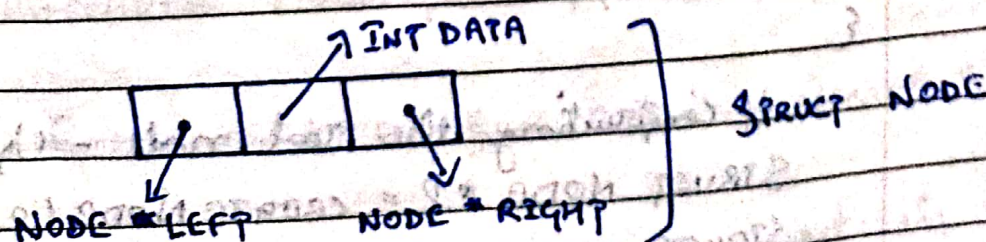 INT DATA
STRUCT NODE
NODE *LEFT NODE * RIGHT